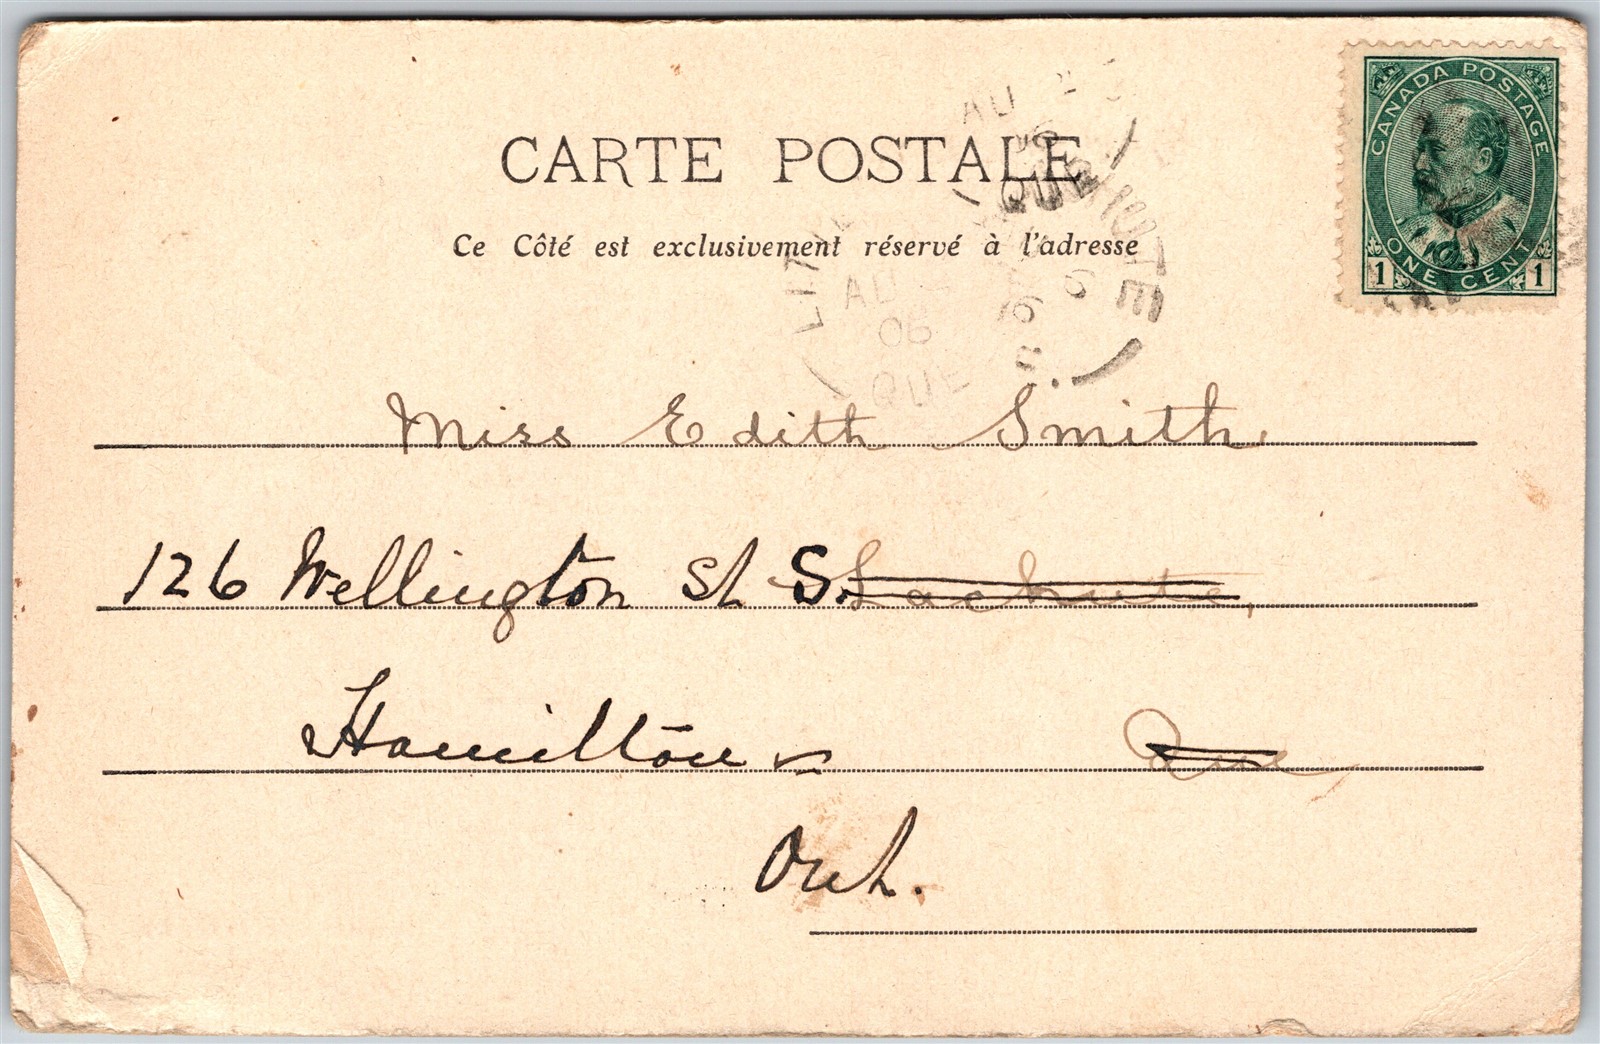 CANADA POSTAGE
ONE CENT
1 1
CARTE POSTALE
Ce Côté est exclusivement réservé à l'adresse
AU
06
QUE
AU
06
QUE
Miss Edith Smith
126 Wellington St S. Lachute,
Hamilton Que
Ont.